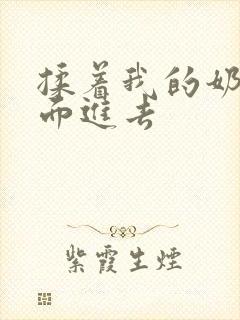 揉着我的奶
而进去
紫霞生烟